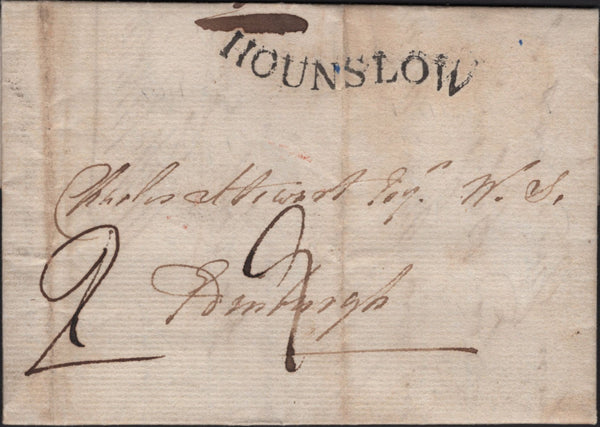 HOUNSLOW
Charles Stewart Esqr. W. S.
Edinburgh